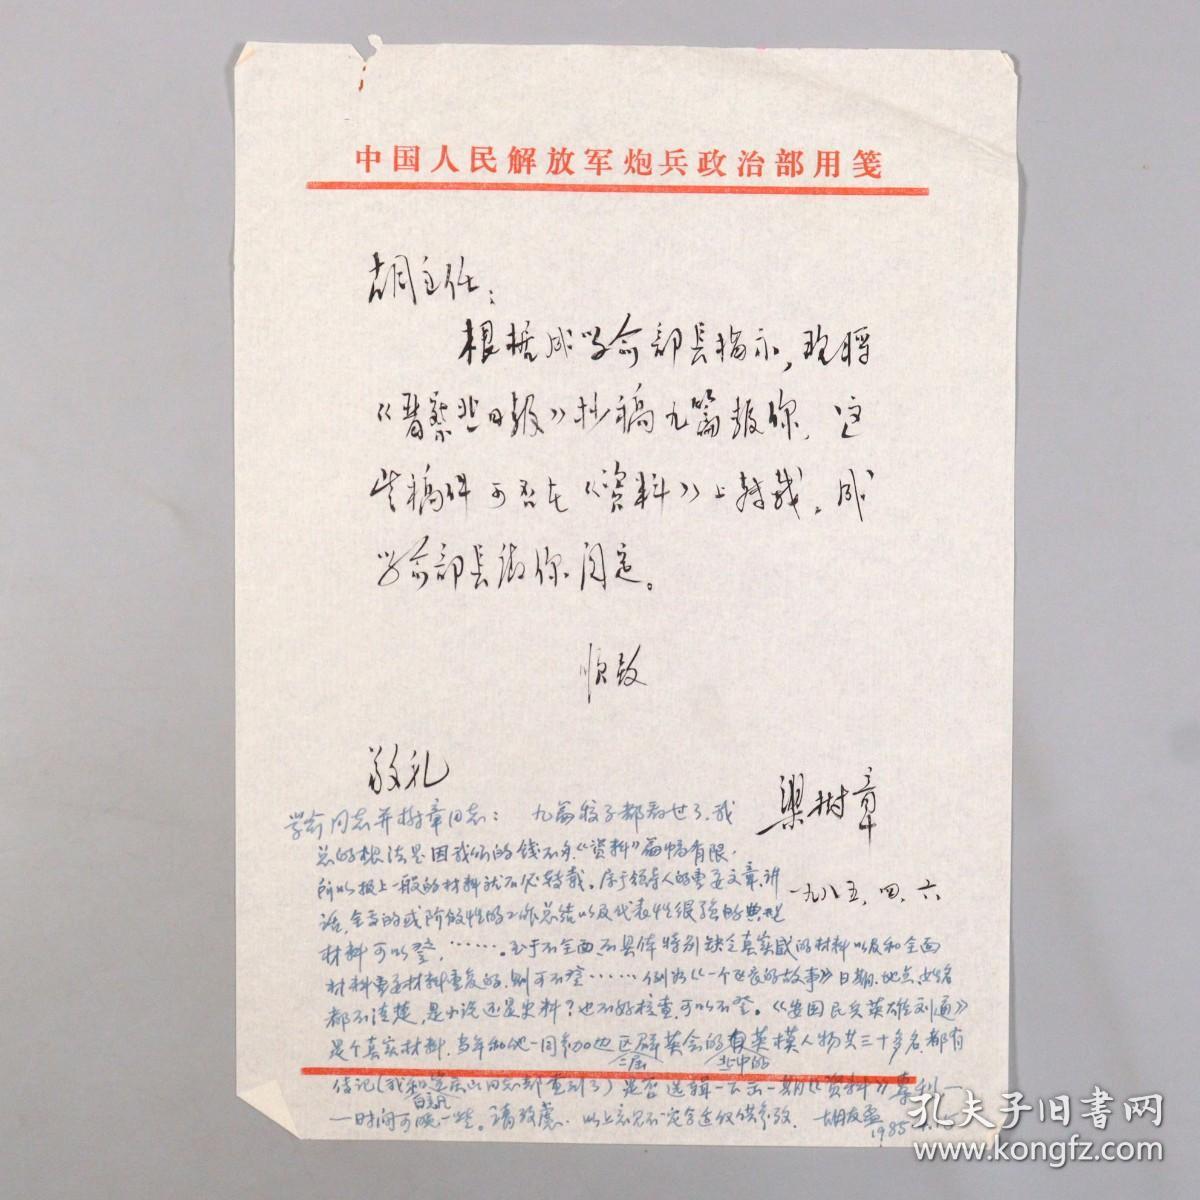 中国人民解放军炮兵政治部用笺
胡主任：
根据成学俞部长指示，现将
《晋察冀日报》抄稿九篇报你，这
些稿件可否在《资料》上转载，成
学俞部长请你阅定。
顺致
敬礼
梁树章
一九八五，四，六
学俞同志并树章同志：九篇稿子都看过了，我
总的想法是因我们的钱不多，《资料》篇幅有限，
所以报上一般的材料就不必转载。属于领导人的重要文章、讲
话，全面的或阶段性的工作总结以及代表性很强的典型
材料可以登，……。至于不全面、不具体特别缺乏真实感的材料以及和全面
材料重要材料重复的，则可不登……例如《一个班长的故事》日期、地点、姓名
都不清楚，是小说还是史料？也不好核查，可以不登。《安国民兵英雄刘通》
是个真实材料，当年和他一同参加边区群英会的英模人物共三十多名，都有
二届
北中的
传记（我和同志都看到了）是否选辑一下出一期《资料》专刊—
—时间可晚一些。请考虑。以上意见不一定合适仅供参考。
1985
孔夫子旧书网
www.kongfz.com